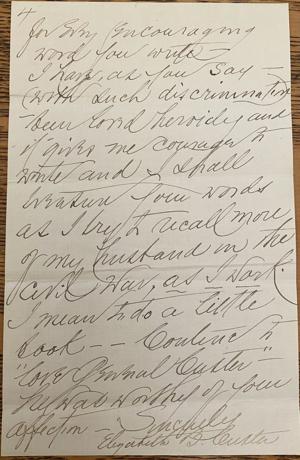 4
for every encouraging
word you write —
I have, as you say —
(with such discrimination
been loved heroically and
it gives me courage to
write and I shall
treasure your words
as I try to recall more
of my husband in the
Civil War, as I work.
I mean to do a little
book — — Continue to
"love General Custer" —
he was worthy of your
affection — Sincerely
Elizabeth B. Custer